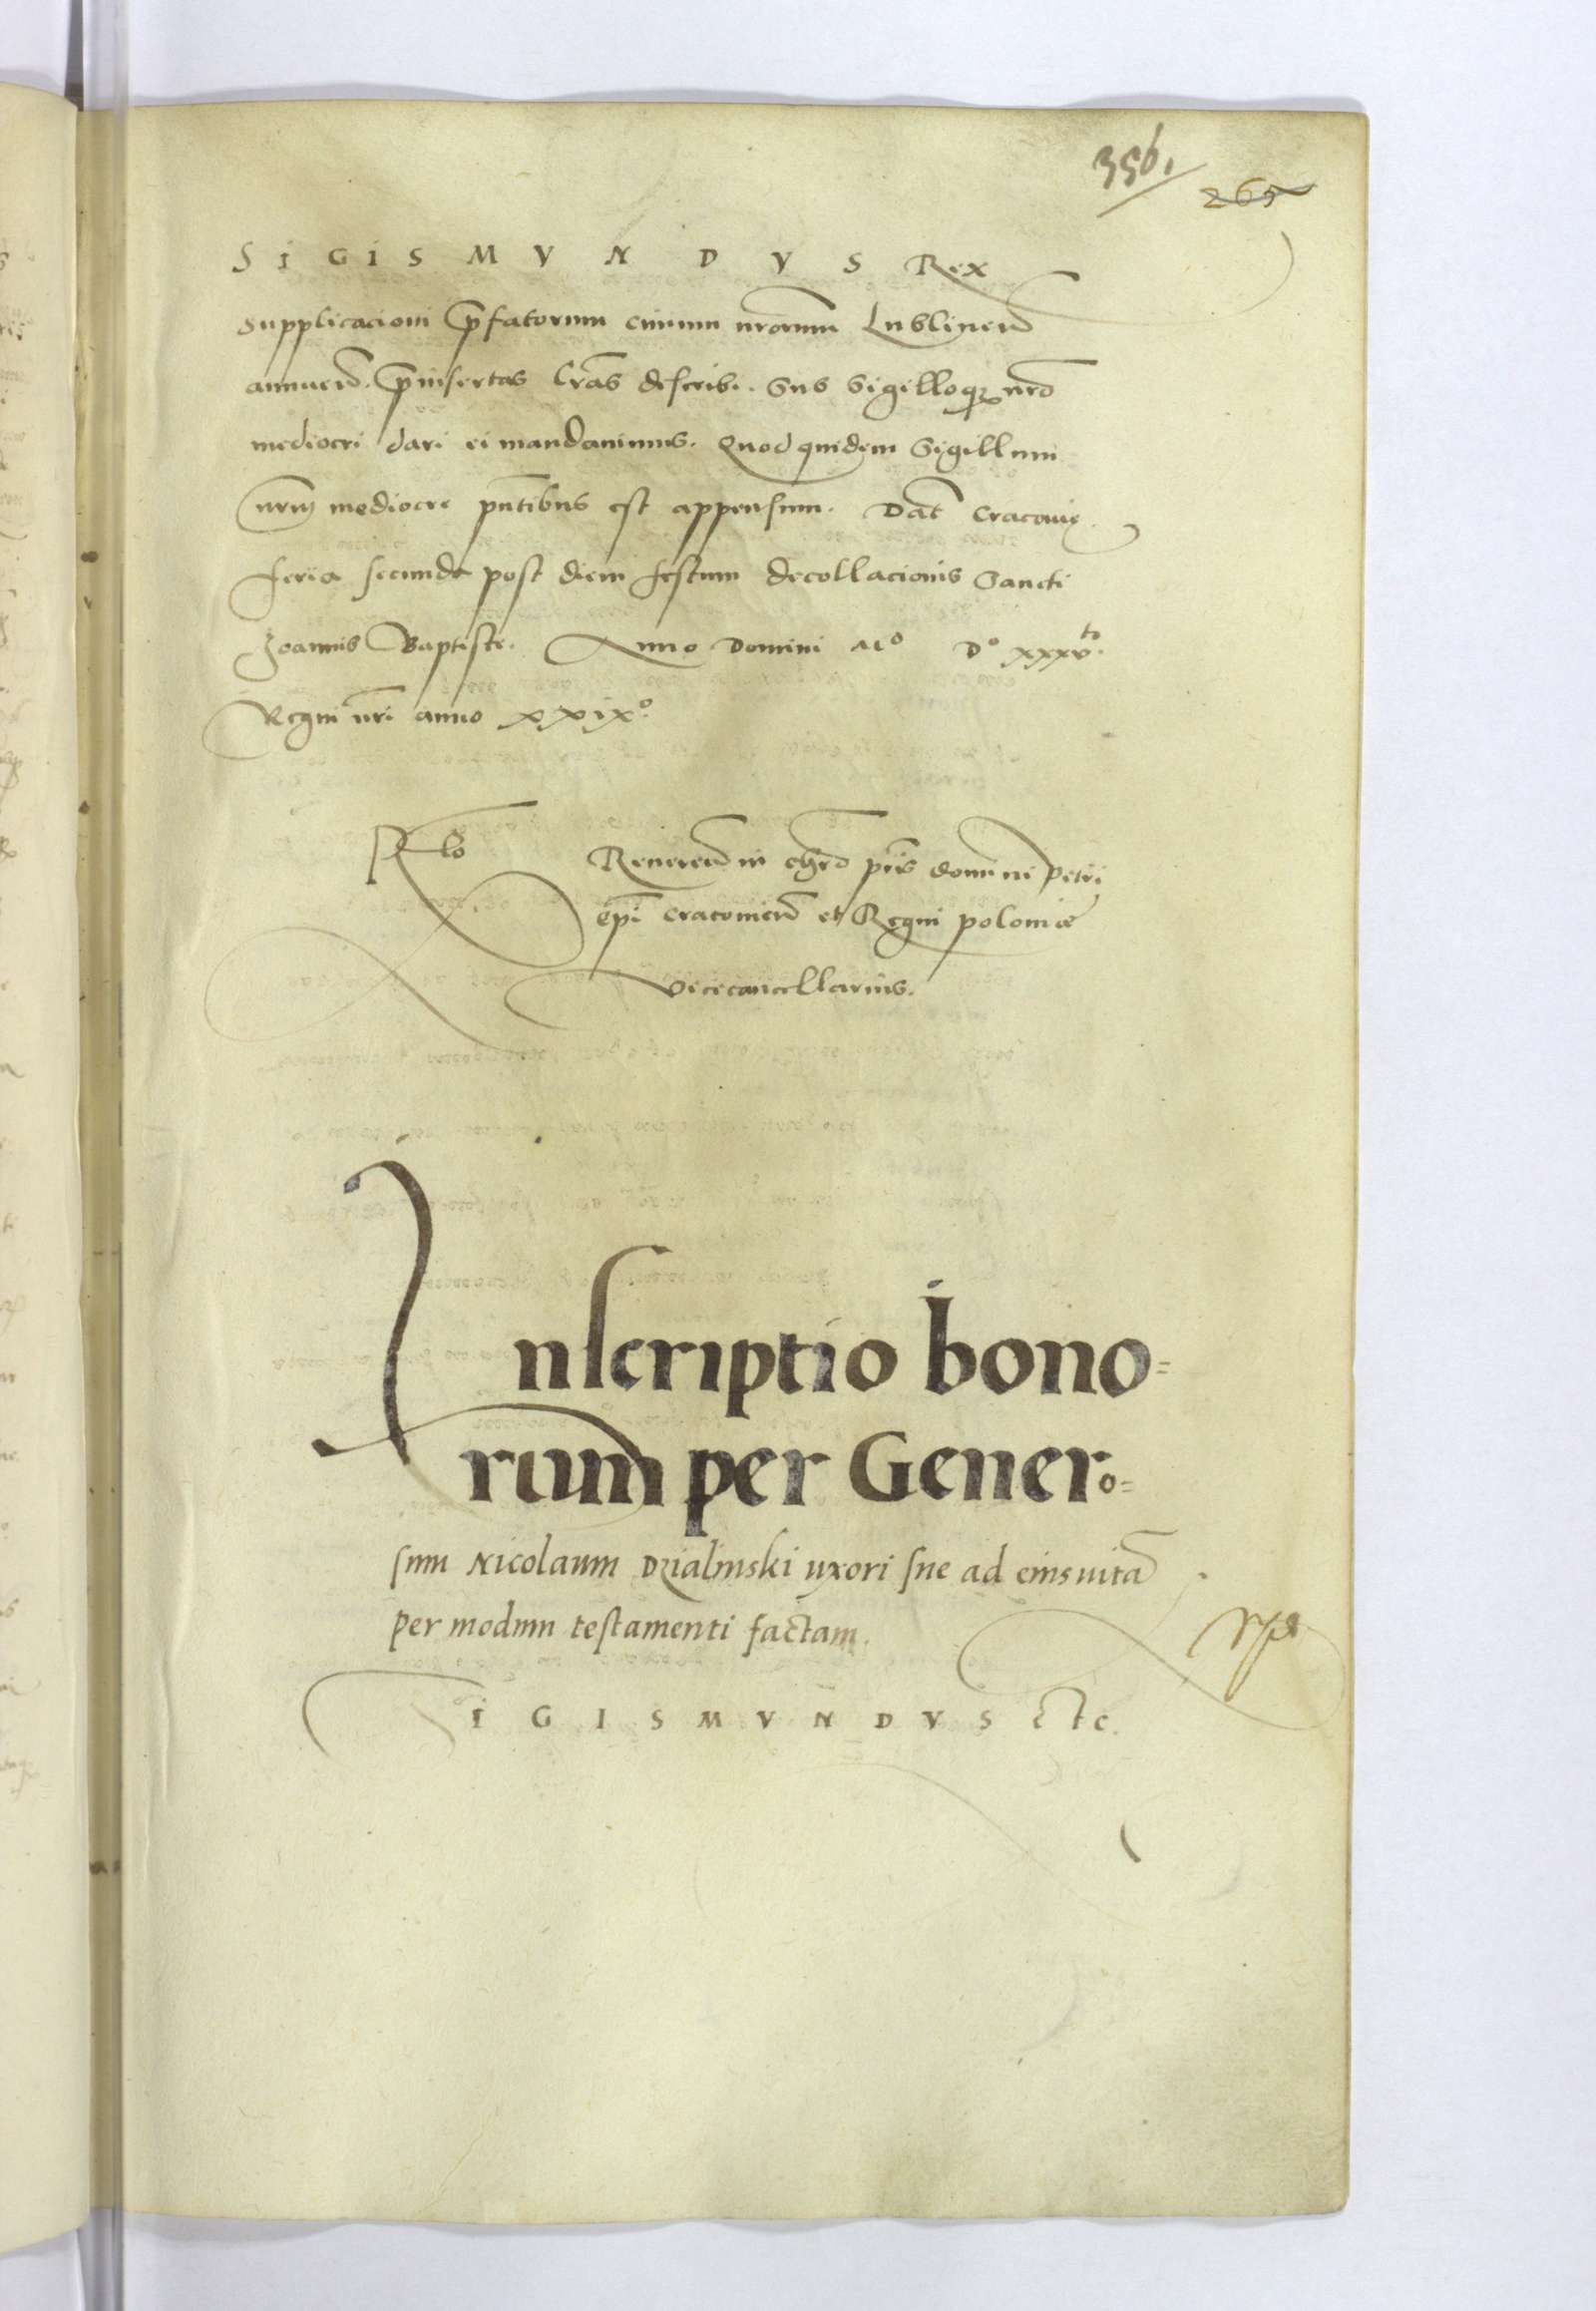 356.
265
SIGISMVNDVS Rex
supplicacioni p̄fatorum ciuium nr̄orum Lublineñ
annueñ. p̄insertas lr̄as describi. Sub Sigilloq₃ nr̄o
mediocri dari ei mandauimus. Quod quidem Sigillum
nr̄m mediocre pn̄tibus est appensum. Dat̄ Cracouię.
feria secunda post diem festum decollacionis Sancti
Joannis Baptistę. Anno Domini Mº Dº xxxvᵗº.
Regni nr̄i anno xxixº.
Rlo Reuereñ in chr̄o pr̄is domini Petri
ep̄i Cracouieñ et Regni poloniæ
vicecancellarius.
Inscriptio bono=
rum per Genero=
sum Nicolaum Dzialinski uxori sue ad eius uitā
per modum testamenti factam.
IGISMVNDVS etc.